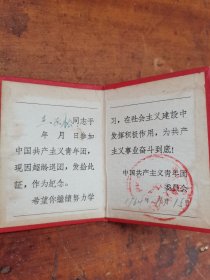 同志平
年 月 日参加
中国共产主义青年团,
现因超龄退团,发给此
证,作为纪念。
希望你继续努力学
习,在社会主义建设中
发挥积极作用,为共产
主义事业奋斗到底!
中国共产主义青年团
委员会